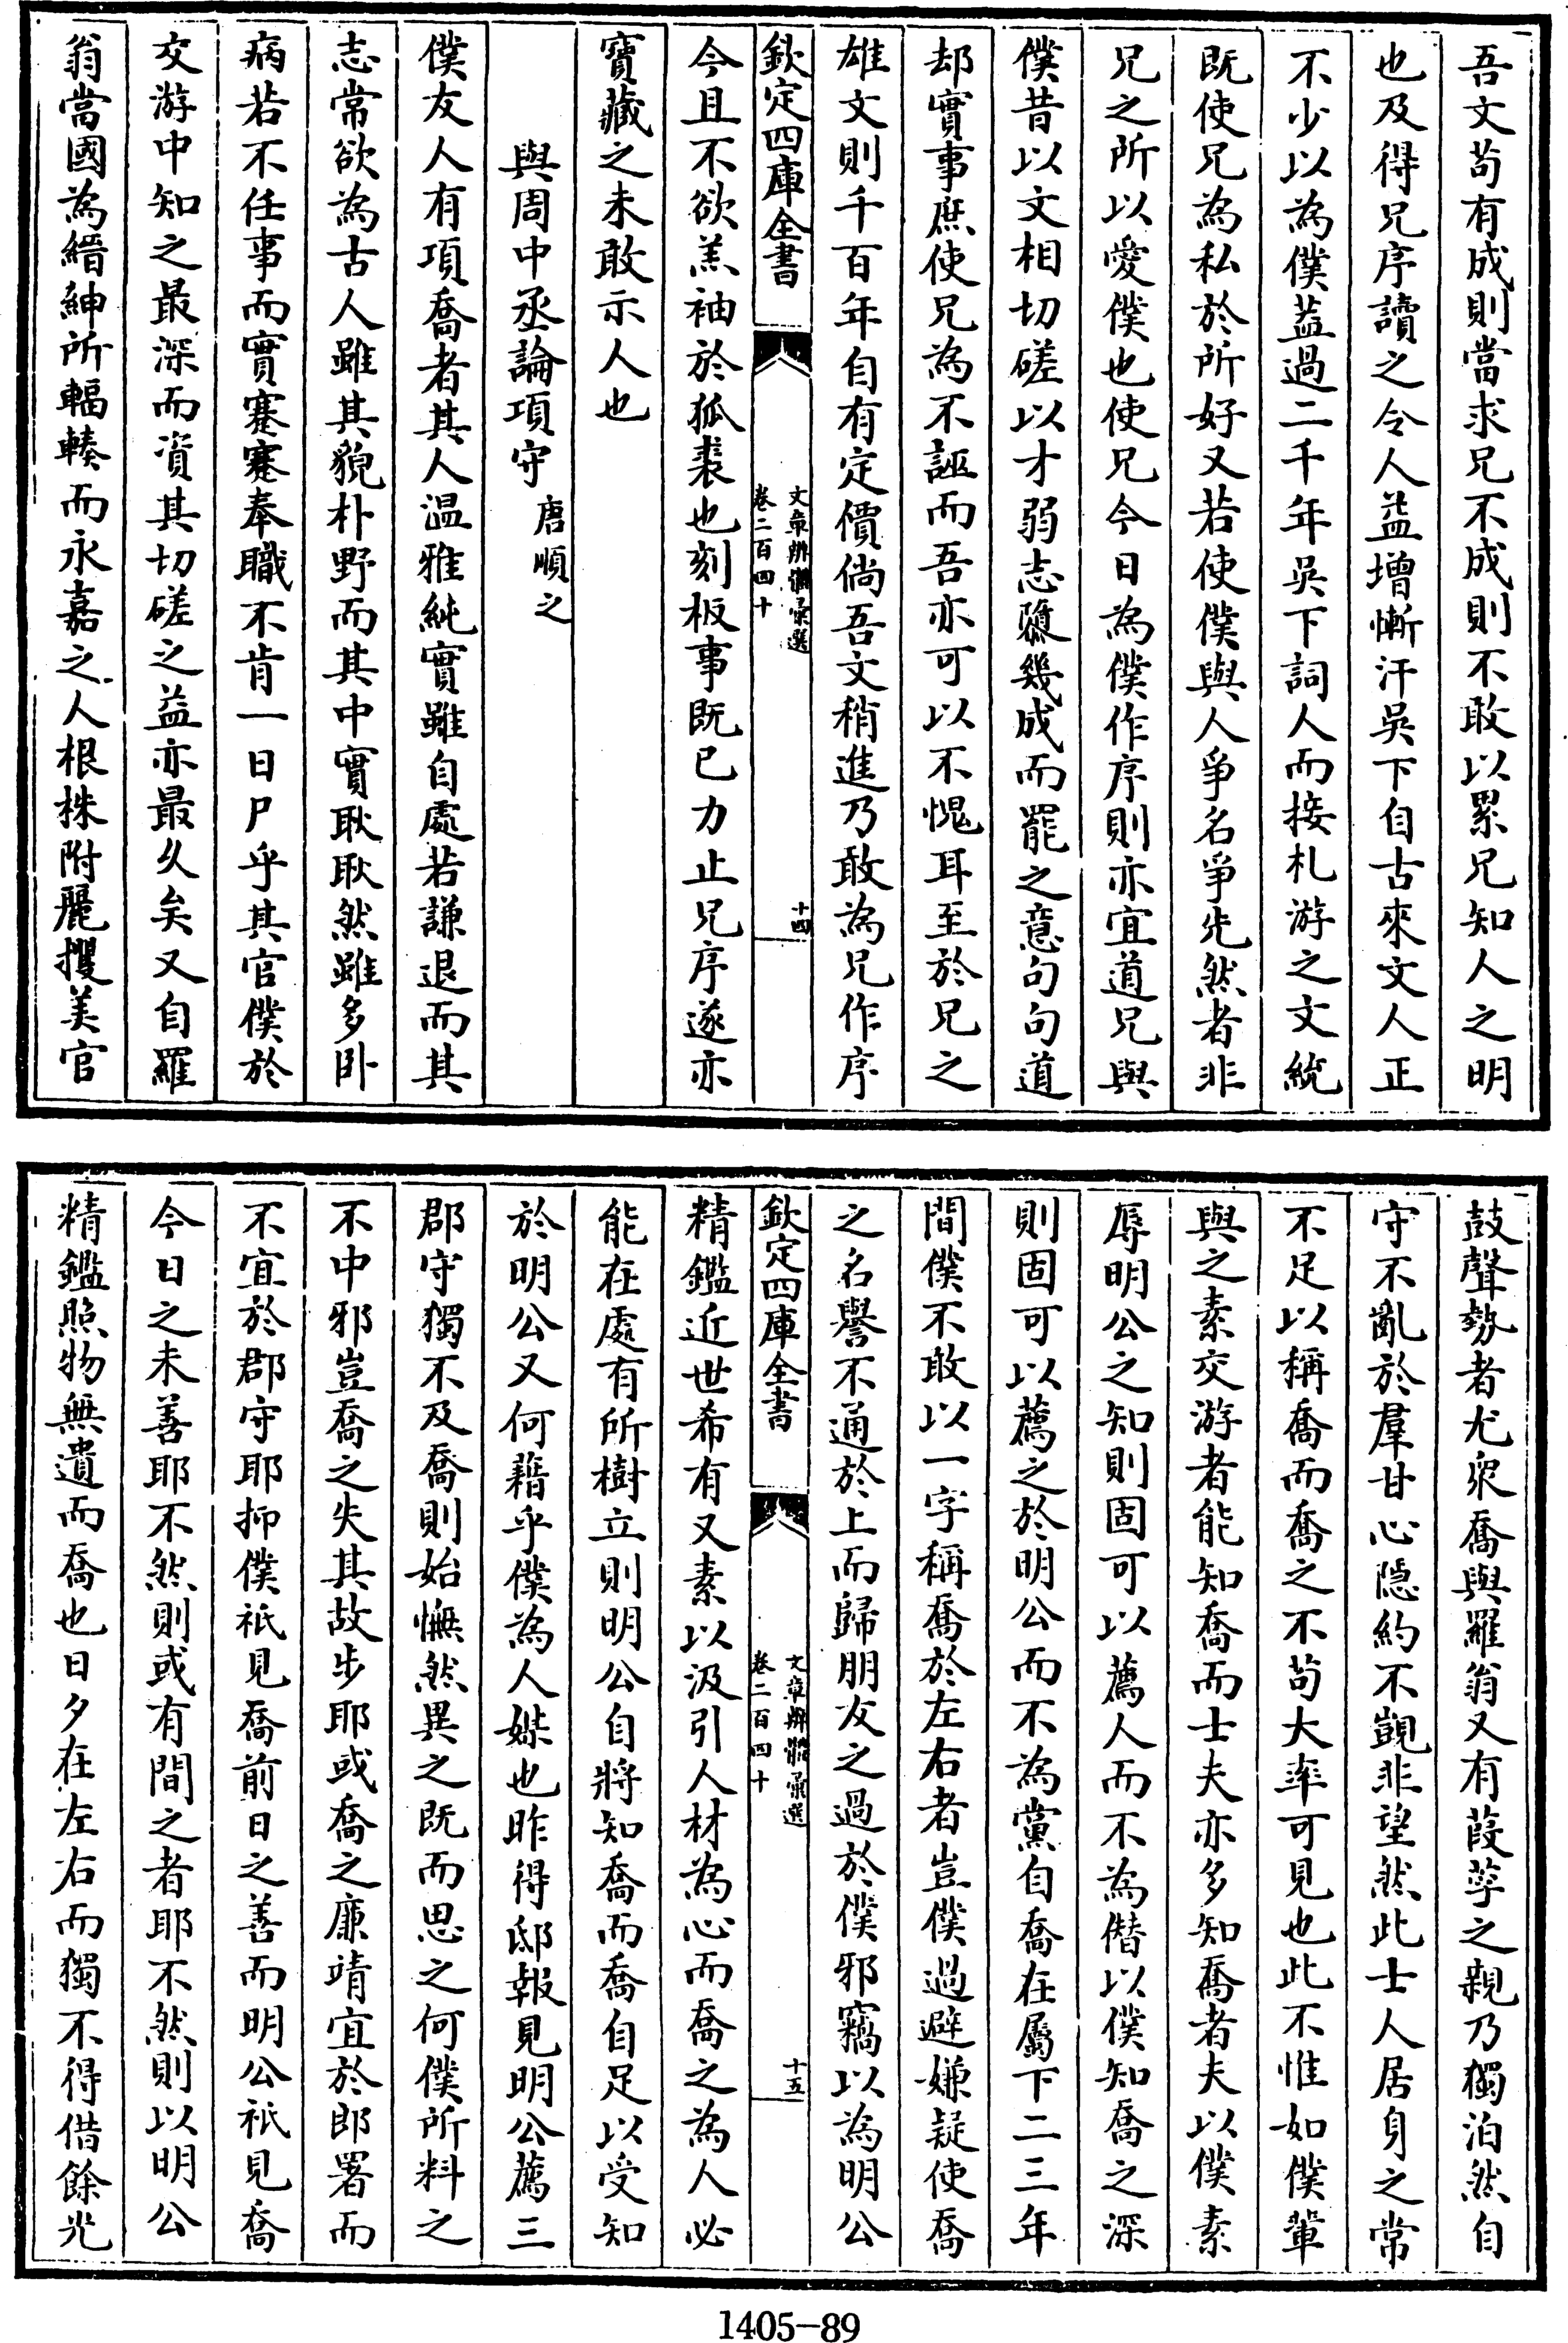 吾文苟有成則當求兄不成則不敢以累兄知人之明
也及得兄序讀之令人益增慚汗吳下自古來文人正
不少以為僕蓋過二千年吳下詞人而接札游之文統
既使兄為私於所好又若使僕與人爭名爭先然者非
兄之所以愛僕也使兄今日為僕作序則亦宜道兄與
僕昔以文相切磋以才弱志隳幾成而罷之意句句道
却實事庶使兄為不誣而吾亦可以不愧耳至於兄之
雄文則千百年自有定價倘吾文稍進乃敢為兄作序
欽定四庫全書
文章辨體彙選
卷二百四十
十四
今且不欲羔袖於狐裘也刻板事既已力止兄序遂亦
寶藏之未敢示人也
與周中丞論項守 唐順之
僕友人有項喬者其人溫雅純實雖自處若謙退而其
志常欲為古人雖其貌朴野而其中實耿耿然雖多卧
病若不任事而實蹇蹇奉職不肯一日尸乎其官僕於
交游中知之最深而資其切磋之益亦最久矣又自羅
翁當國為縉紳所輻輳而永嘉之人根株附麗攫美官
鼓聲勢者尤衆喬與羅翁又有葭莩之親乃獨泊然自
守不亂於羣甘心隱約不覬非望然此士人居身之常
不足以稱喬而喬之不苟大率可見也此不惟如僕輩
與之素交游者能知喬而士夫亦多知喬者夫以僕素
辱明公之知則固可以薦人而不為僭以僕知喬之深
則固可以薦之於明公而不為黨自喬在屬下二三年
間僕不敢以一字稱喬於左右者豈僕過避嫌疑使喬
之名譽不通於上而歸朋友之過於僕邪竊以為明公
欽定四庫全書
文章辨體彙選
卷二百四十
十五
精鑑近世希有又素以汲引人材為心而喬之為人必
能在處有所樹立則明公自將知喬而喬自足以受知
於明公又何藉乎僕為人媒也昨得邸報見明公薦三
郡守獨不及喬則始憮然異之既而思之何僕所料之
不中邪豈喬之失其故步耶或喬之廉靖宜於郎署而
不宜於郡守耶抑僕祇見喬前日之善而明公祇見喬
今日之未善耶不然則或有間之者耶不然則以明公
精鑑照物無遺而喬也日夕在左右而獨不得借餘光
1405-89